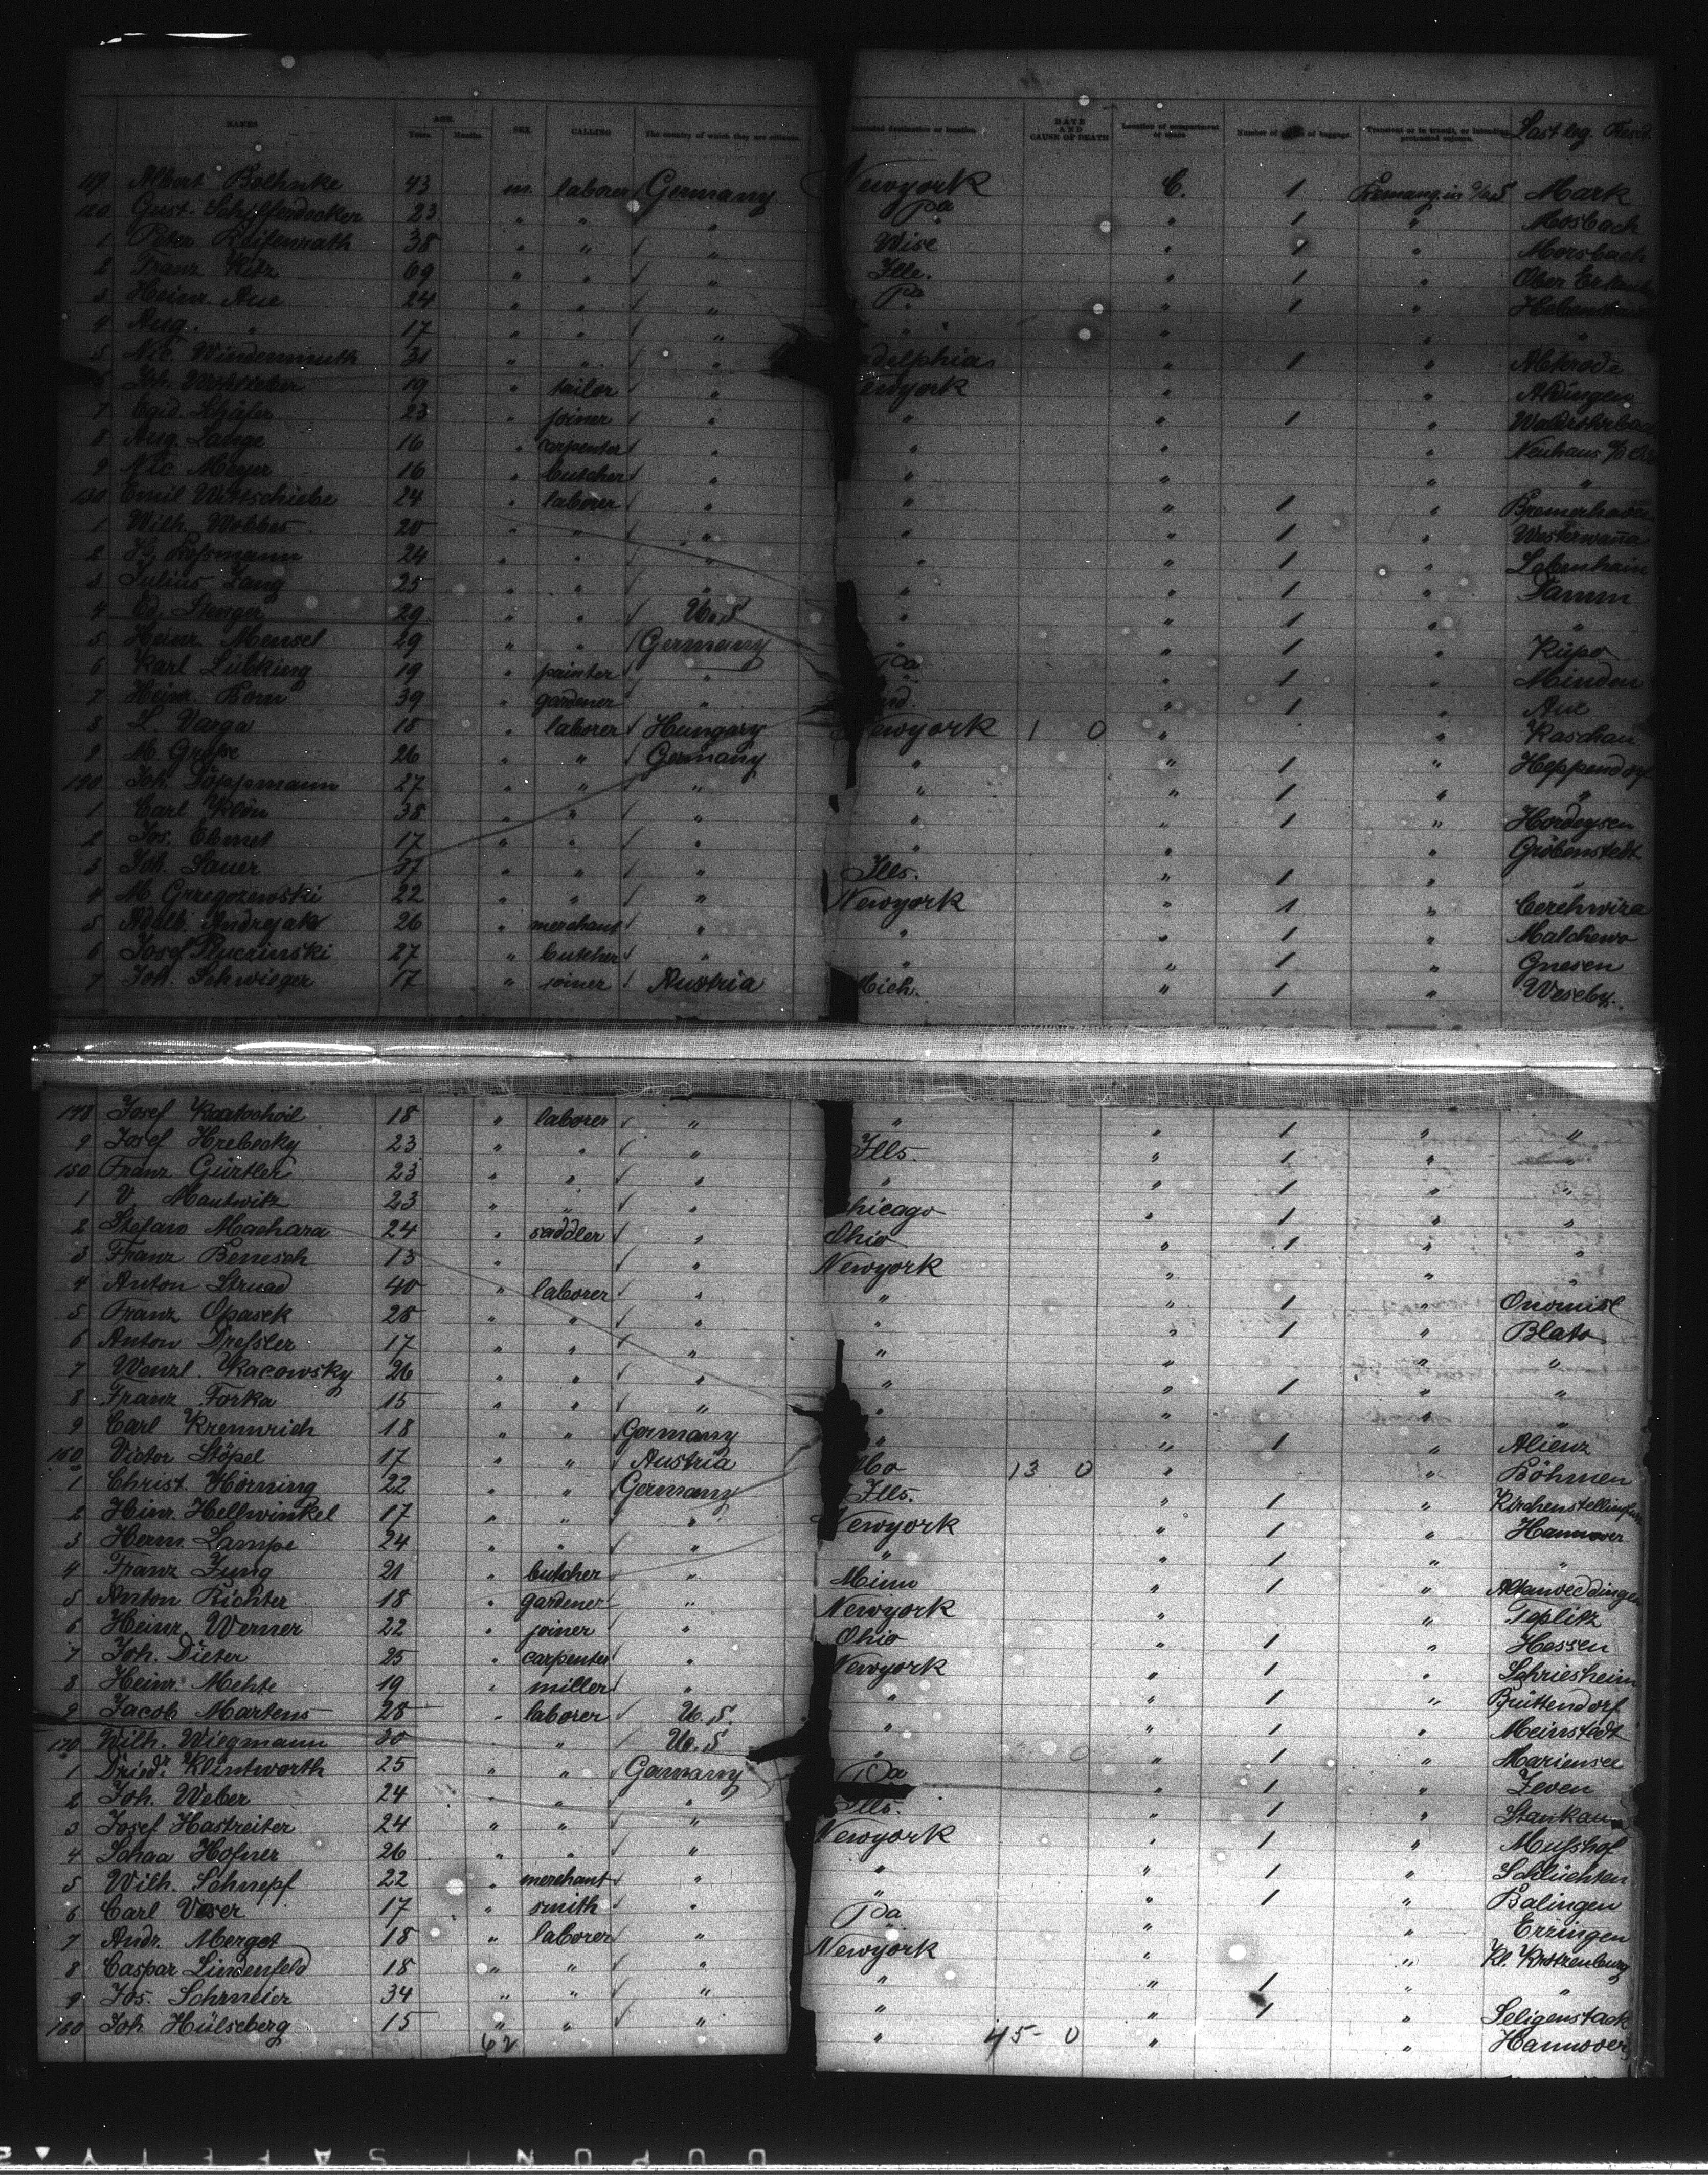 NAMES AGE. Years. Months. SEX. CALLING The country of which they are citizens. Intended destination or location. DATE AND CAUSE OF DEATH Location of compartment or space Number of of baggage. Transient or in transit, or intending protracted sojourn. Last leg. Resid
119 Albert Bolhnke 43 m. laborer Germany Newyork C. 1 Mark
120 Gust. 23 " " " Pa " 1 " Mosbach
1 Peter Reifenrath 38 " " " Wisc " 1 " Morsbach
2 Franz Kitz 69 " " " Ills. " 1 " Ober
3 Heinr. Aue 24 " " " Pa " 1 "
4 Aug. " 17 " " " " " " "
5 Nic. Windemuth 31 " " " adelphia " 1 "
6 Joh. 19 " tailor " ewyork " " Aldingen
7 Egid. Schäfer 23 " joiner " " " 1 "
8 Aug. Lange 16 " carpenter " " " " Neuhaus
9 Nic. Meyer 16 " butcher " " " " "
130 Emil Wittschiebe 24 " laborer " " " 1 " Bremerhaven
1 Wilh. Wobbes 20 " " " " " 1 " Westerwanna
2 H. Lossmann 24 " " " " " 1 " Labenhain
3 Julius Zang 25 " " " " " 1 " Damm
4 Ed. Stenger 29 " " U.S " " 1 " "
5 Heinr. Mensel 29 " " Germany " " 1 " Küps
6 Karl Lübking 19 " painter " Pa " 1 " Minden
7 Heinr. Born 39 " gardener " nd. " 1 " Aue
8 L. Varga 18 " laborer Hungary Newyork 1 0 " " Kaschau
9 M. Grosse 26 " " Germany " " 1 " Heppendorf
190 Joh. Töppmann 27 " " " " " 1 " "
1 Carl Klön 38 " " " " " 1 "
2 Jos. Ehmet 17 " " " " " " Gröbenstedt
3 Joh. Sauer 37 " " " Ills. " 1 " "
4 M. Grzegozewski 22 " " " Newyork " 1 " Cerehwiza
5 Adalb. Andrejak 26 " merchant " " " 1 " Malchewo
6 Josef Pluczinski 27 " butcher " " " 1 " Gnesen
7 Joh. Schwieger 17 " joiner Austria Mich. " 1 " Wesely.
148 Josef 18 " laborer " " " 1 " "
9 Josef Hrebecky 23 " " " Ills. " 1 " "
150 Franz Gürtler 23 " " " " " 1 " "
1 V. Mautwitz 23 " " " Chicago " 1 " "
2 Stefan Machara 24 " saddler " Ohio " 1 " "
3 Franz Benesch 13 " " Newyork " " "
4 Anton Strnad 40 " laborer " " " 1 " Onomisl
5 Franz Opasek 28 " " " " " 1 " Blato
6 Anton Dressler 17 " " " " " " "
7 Wenzl. Kacowsky 26 " " " " " 1 " "
8 Franz Forka 15 " " " " " " "
9 Carl Kremrich 18 " " Germany " " 1 " Alienz
160 Victor Stöpel 17 " " Austria Mo 13 0 " " Böhmen
1 Christ. Hörning 22 " " Germany Ills. " 1 "
2 Hinr. Hellwinkel 17 " " " Newyork " 1 " Hannover
3 Herm. Lampe 24 " " " " " 1 " "
4 Franz Jung 21 " butcher " Minn " 1 " Altenweddingen
5 Anton Richter 18 " gardener " Newyork " " Teplitz
6 Heinr. Werner 22 " joiner " Ohio " 1 " Hessen
7 Joh. Dieter 25 " carpenter " Newyork " 1 " Schriesheim
8 Heinr. Mehte 19 " miller " " " 1 " Brüttendorf
9 Jacob Martens 28 " laborer U.S. " " 1 " Meinstedt
170 Wilh. Wiegmann 30 " U.S " " 1 " Mariensee
1 Dried. Klintworth 25 " " Gemany Pa " 1 " Zeven
2 Joh. Weber 24 " " " Ills. " 1 " Stankau
3 Josef Hastreiter 24 " " " Newyork " 1 " Mushof
4 Hofner 26 " " " " " 1 " Schlüchten
5 Wilh. Schnepf 22 " merchant " " " 1 " Balingen
6 Carl Veser 17 " smith " Pa " " Erzingen
7 Andr. Merget 18 " laborer " Newyork " " Kl. Krotzenburg
8 Caspar Lindenfeld 18 " " " " " 1 " "
9 Jos. Schmeier 34 " " " " " 1 " Seligenstadt
180 Joh. Hülseberg 15 " " " " 45 0 " " Hannover
62
DUPONT SAFETY